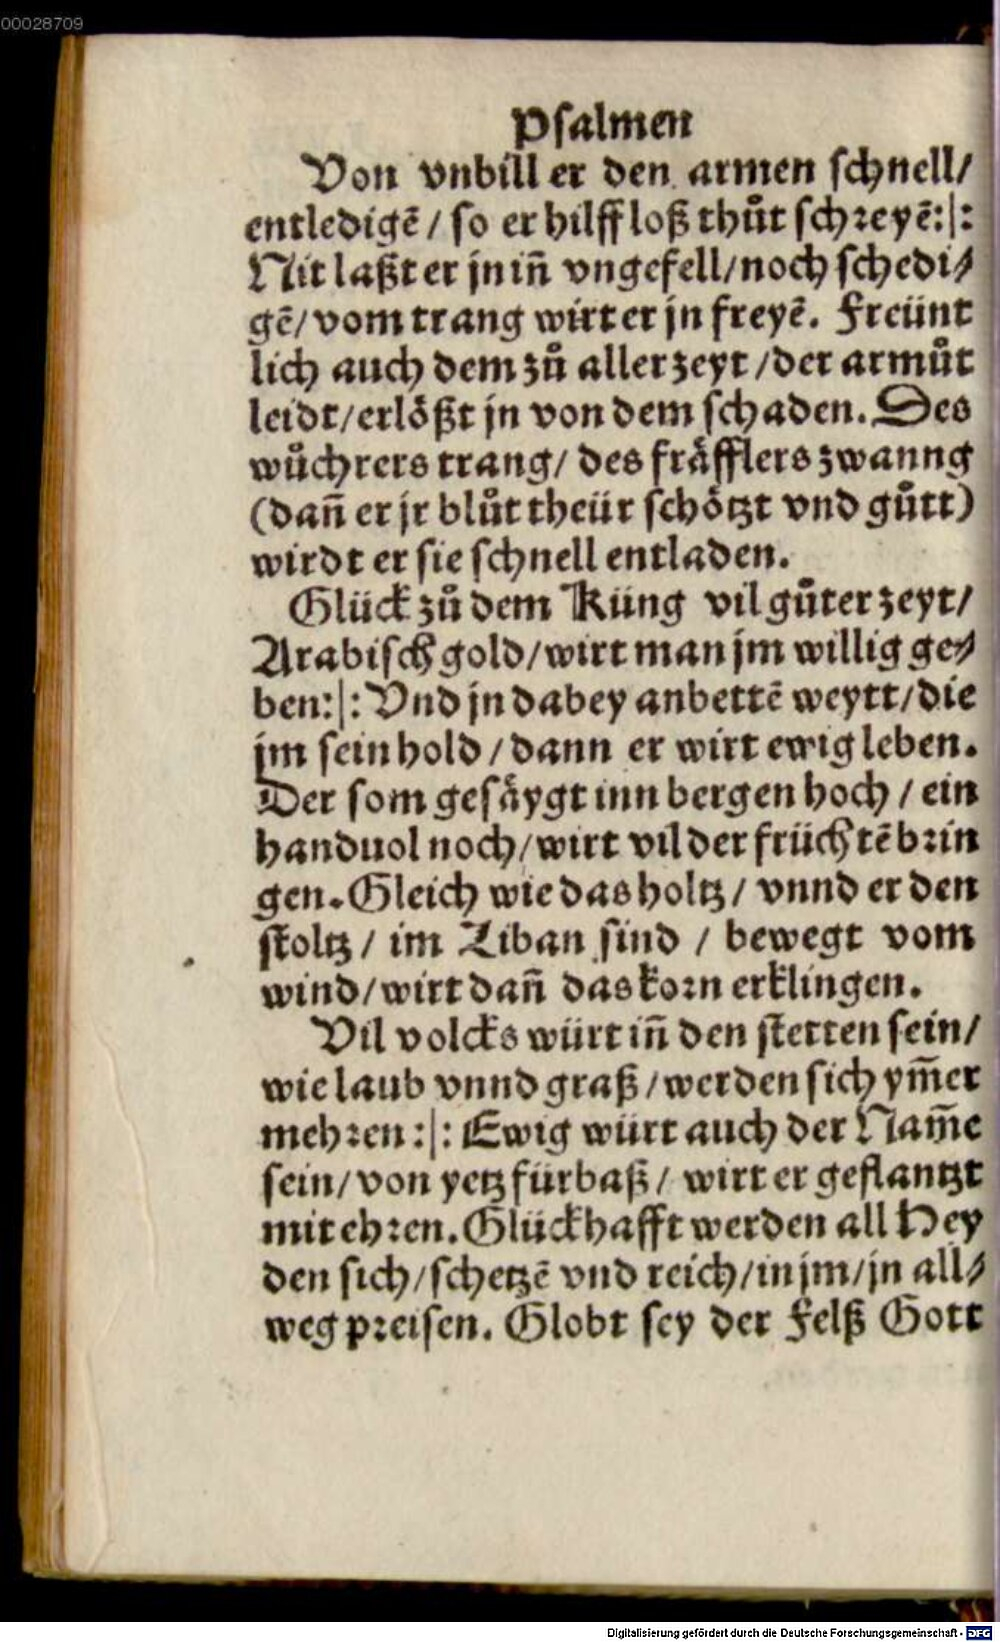 00028709
Psalmen
Von vnbill er den armen schnell/
entledigē / so er hilff loß thůt schreyē:|:
Nit laßt er jn iñ vngefell/noch schedi⸗
gē/vom trang wirt er jn freyē. Freünt
lich auch dem zů aller zeyt /der armůt
leidt/erlößt jn von dem schaden. Des
wůchrers trang/ des fräfflers zwanng
(dañ er jr blůt theür schötzt vnd gůtt)
wirdt er sie schnell entladen.
Glück zů dem Küng vil gůter zeyt/
Arabisch gold/wirt man jm willig ge⸗
ben:|: Vnd jn dabey anbettē weytt/die
jm sein hold / dann er wirt ewig leben.
Der som gesäygt inn bergen hoch / ein
handuol noch/wirt vil der früchtē brin
gen. Gleich wie das holtz / vnnd er den
stoltz / im Liban sind / bewegt vom
wind/wirt dañ das korn erklingen.
Vil volcks würt iñ den stetten sein/
wie laub vnnd graß/werden sich ym̄er
mehren:|: Ewig würt auch der Nam̄e
sein/von yetz fürbaß/ wirt er geflantzt
mit ehren. Glückhafft werden all Hey
den sich/schetzē vnd reich/in jm/jn all⸗
weg preisen. Globt sey der Felß Gott
Digitalisierung gefördert durch die Deutsche Forschungsgemeinschaft - DFG